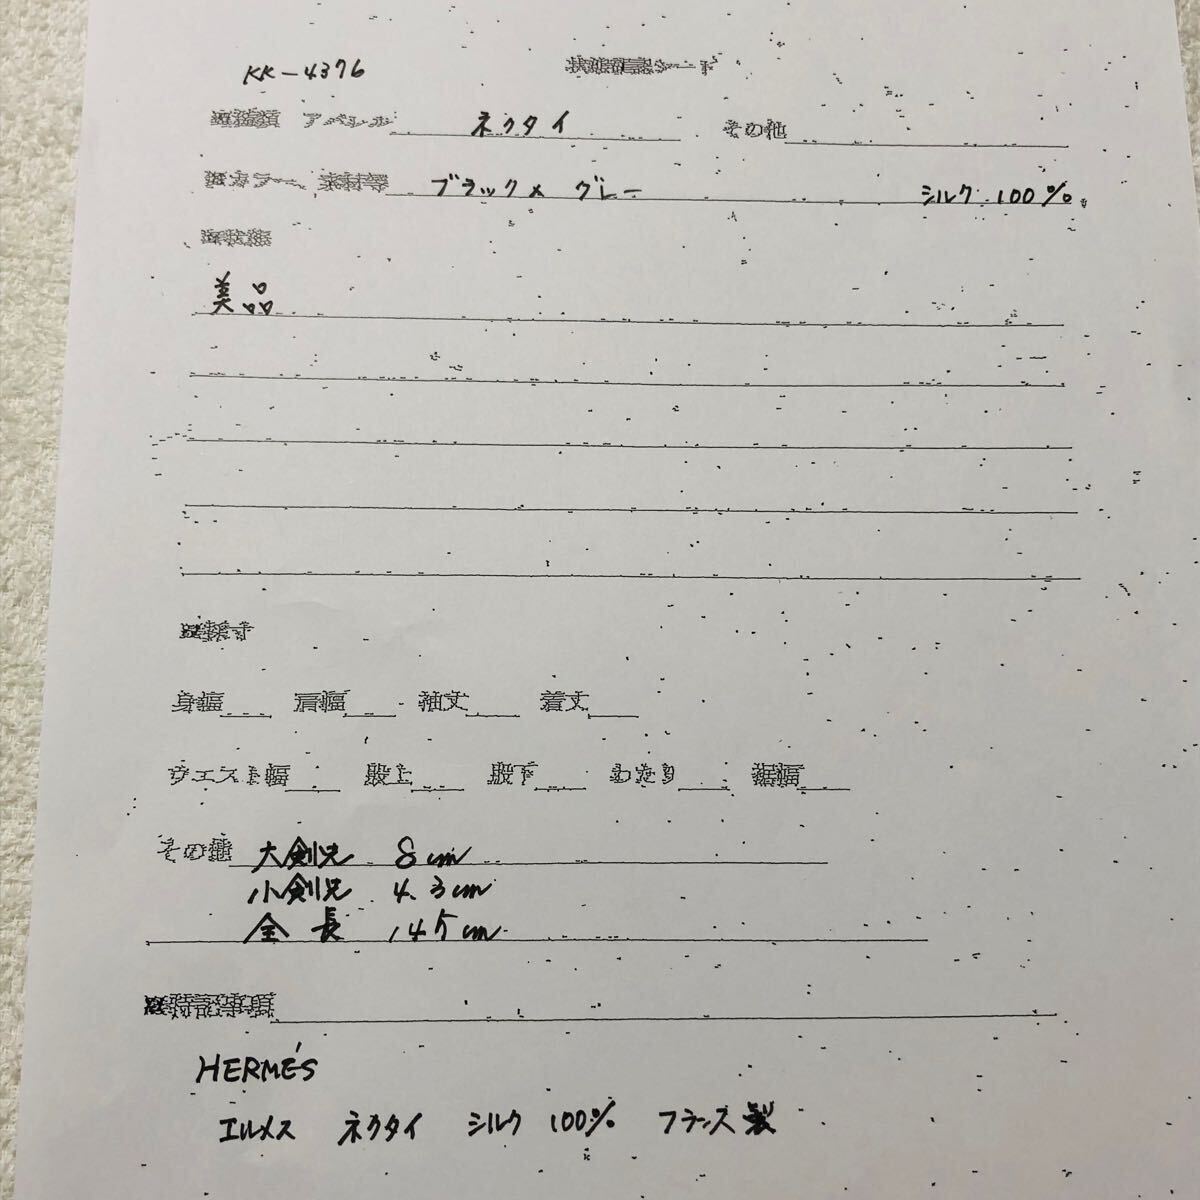 KK-4376 状態確認シート
種類 アパレル ネクタイ その他
カラー、素材等 ブラック×グレー シルク 100%
状態
美品
採寸
身幅 肩幅 袖丈 着丈
ウエスト幅 股上 股下 わたり 裾幅
その他 大剣先 8cm
小剣先 4.3cm
全長 145cm
特記事項
HERMÉS
エルメス ネクタイ シルク 100% フランス製